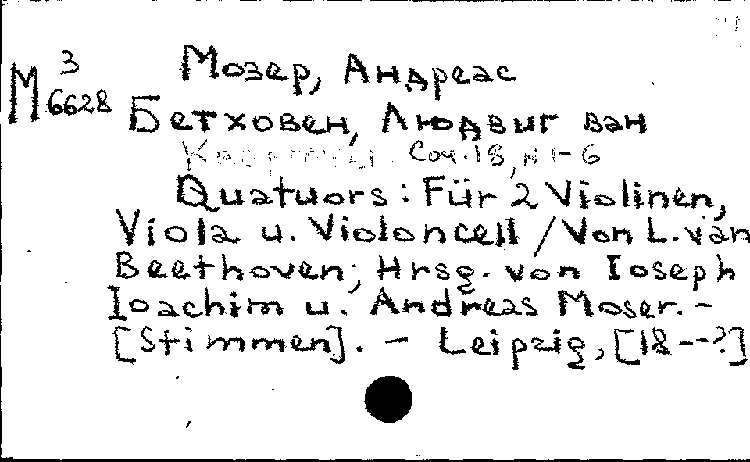 М 3
6628
Мозер, Андреас
Бетховен, Людвиг ван
Соч. 18, № 1-6
Quatuors: Für 2 Violinen,
Viola u. Violoncell / Von L. van
Beethoven; Hrsg. von Ioseph
Ioachim u. Andreas Moser. -
[Stimmen]. - Leipzig, [18--?]